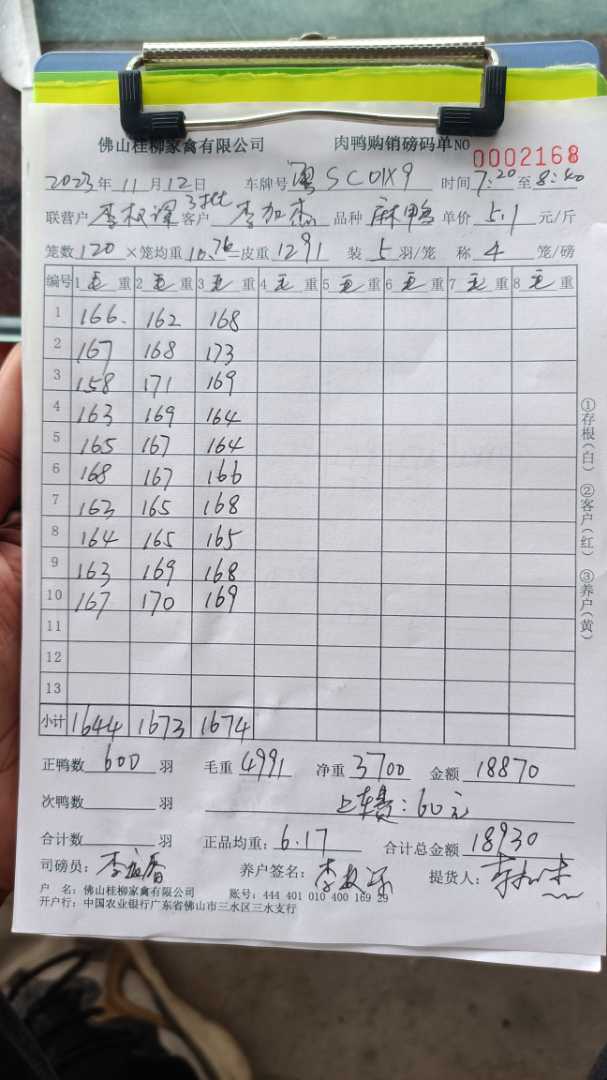 佛山桂柳家禽有限公司 肉鸭购销磅码单 NO 0002168
2023年 11月12日 车牌号 粤SC01X9 时间 7:20 至 8:40
联营户 李权深 3批 客户 李加杰 品种 麻鸭 单价 5.1 元/斤
笼数 120 ×笼均重 10.76 =皮重 1291 装 5 羽/笼 称 4 笼/磅
编号 1 毛 重 2 毛 重 3 毛 重 4 毛 重 5 毛 重 6 毛 重 7 毛 重 8 毛 重
1 166 162 168
2 167 168 173
3 158 171 169
4 163 169 164
5 165 167 164
6 168 167 166
7 163 165 168
8 164 165 165
9 163 169 168
10 167 170 169
11
12
13
小计 1644 1673 1674
正鸭数 600 羽 毛重 4991 净重 3700 金额 18870
次鸭数 羽 上车费:60元
合计数 羽 正品均重: 6.17 合计总金额 18930
司磅员: 养户签名: 李权深 提货人:
户 名: 佛山桂柳家禽有限公司 账号: 444 401 010 400 169 29
开户行: 中国农业银行广东省佛山市三水区三水支行
①存根(白) ②客户(红) ③养户(黄)